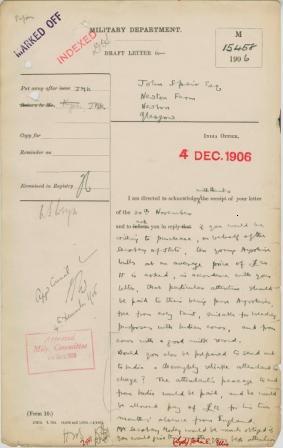 MARKED OFF
INDEXED
MILITARY DEPARTMENT.
DRAFT LETTER to—
M
15458
1906
Put away after issue
Return to Mr.
John Speir Esq
Newton Farm
Newton
Glasgow
Copy for
INDIA OFFICE,
Reminder on
4 DEC. 1906
Examined in Registry
with thanks
I am directed to acknowledge the receipt of your letter
of the 20th November
and to inform you in reply that if you would be
willing to purchase, on behalf of the
Secretary of State, ten young Ayrshire
bulls at an average price of
It is asked, in accordance with your
letter, that particular attention should
be paid to their being pure Ayrshires,
free from any taint, suitable for breeding
purposes with Indian cows, and from
cows with a good milk record.
Would you also be prepared to send out
to India a thoroughly reliable attendant in
charge? The attendant's passage to and
from India would be paid, and he would
be allowed pay of for his two
months' absence from England.
Mr Secretary Morley would be much obliged if
you would give
Approved
Mily. Committee
Appd Council
4 December 1906
(Form 10.)